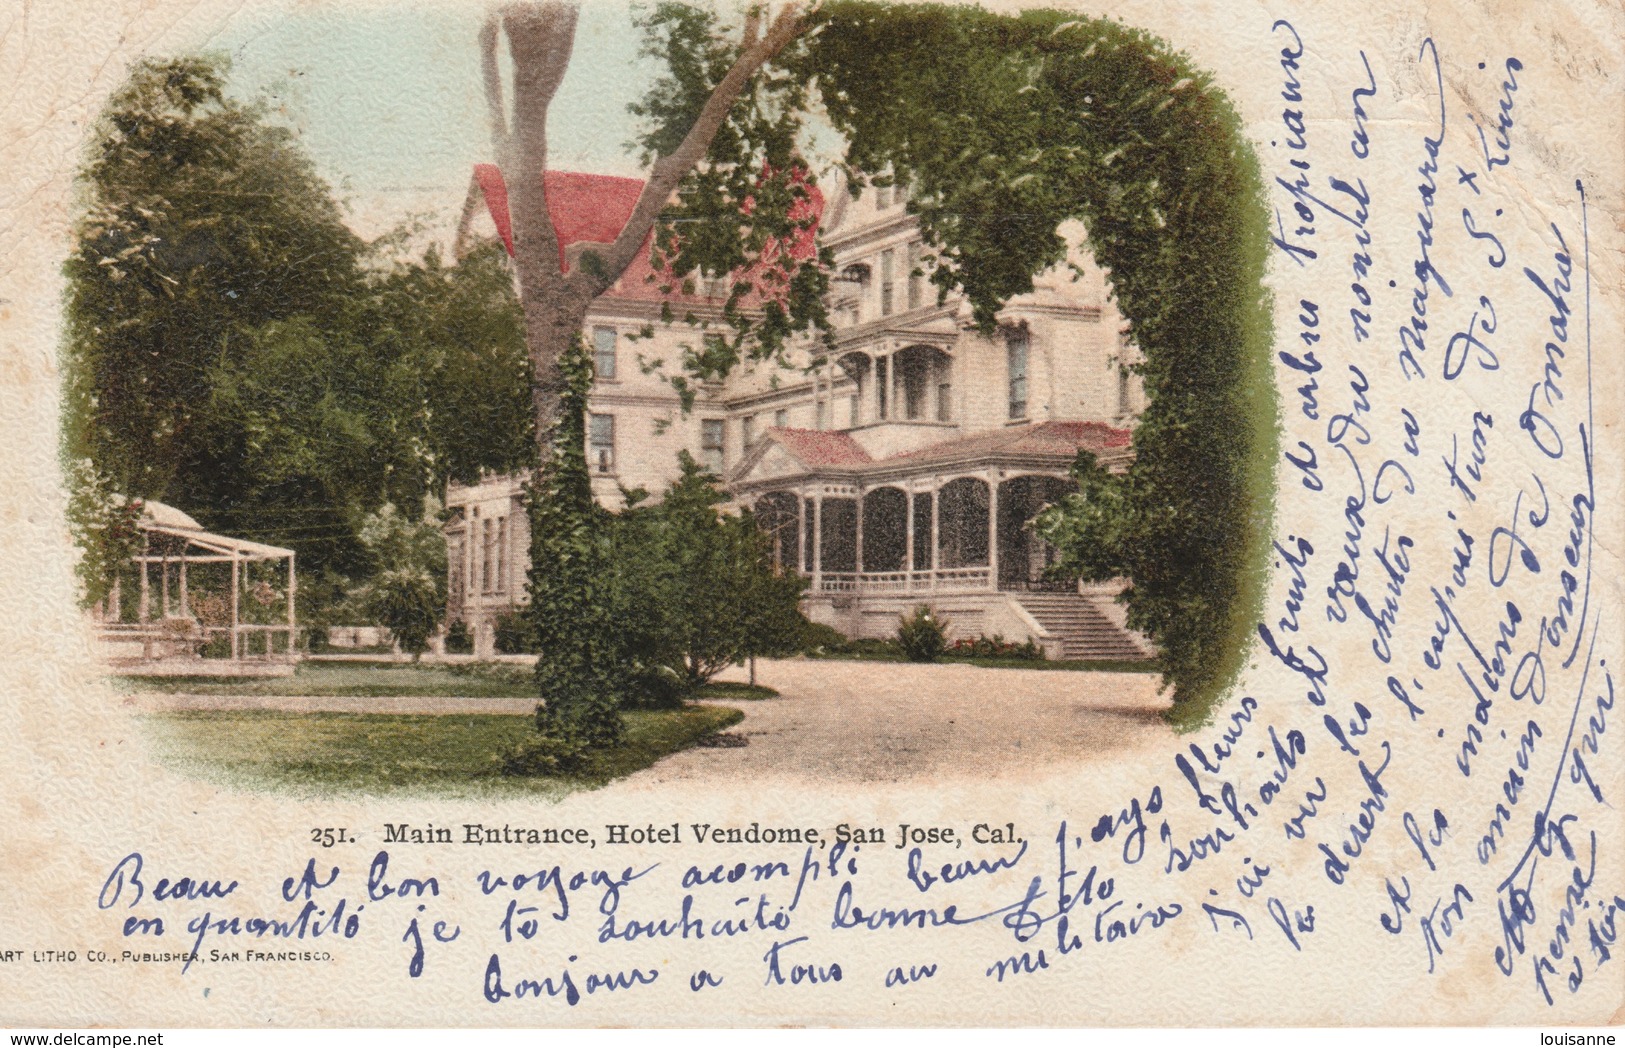 251. Main Entrance, Hotel Vendome, San Jose, Cal.
ART LITHO CO., PUBLISHER, SAN FRANCISCO.
Beau et bon voyage acompli beau pays fleurs fruits et arbres tropicaux
en quantité je te souhaite bonne souhaits et
bonjour a tous au militaire
J'ai vu les chutes du Niaguara
le desert et l'exposition de S.x Louis
et les indiens de Omaha
ton ancien
et qui
pense
a toi
delcampe.net
louisanne